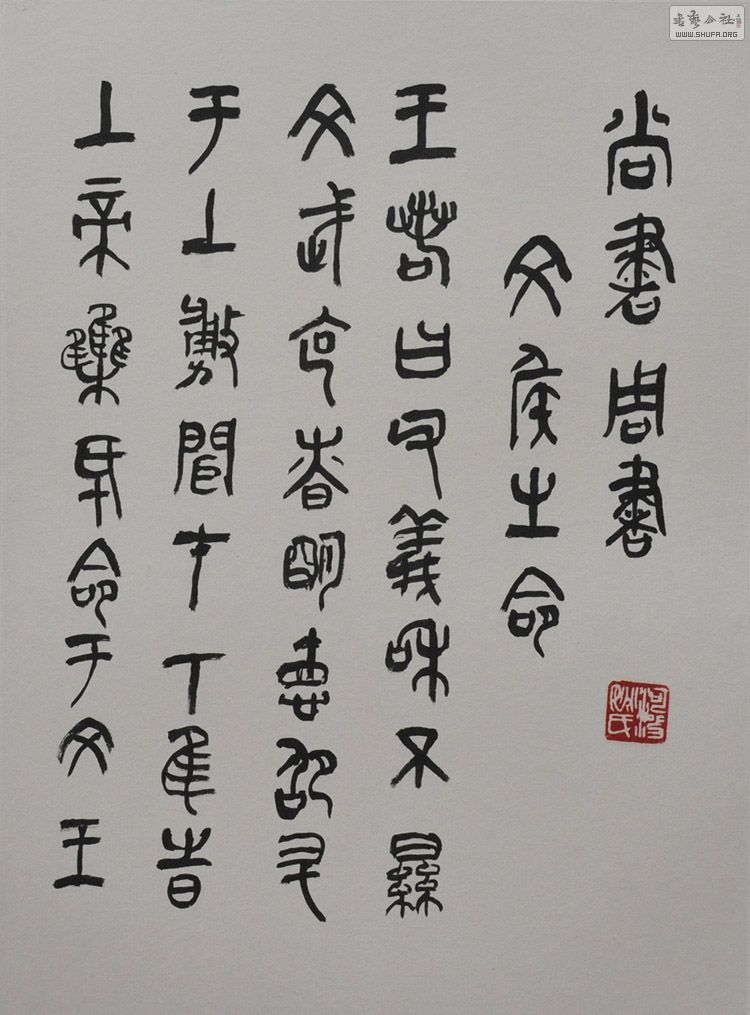 尚書周書
文侯之命
王若曰父義和不㬎
文武克昚明悳卲升
于上敷聞才下隹旹
上帝集氒命于文王
書藝公社
WWW.SHUFA.ORG